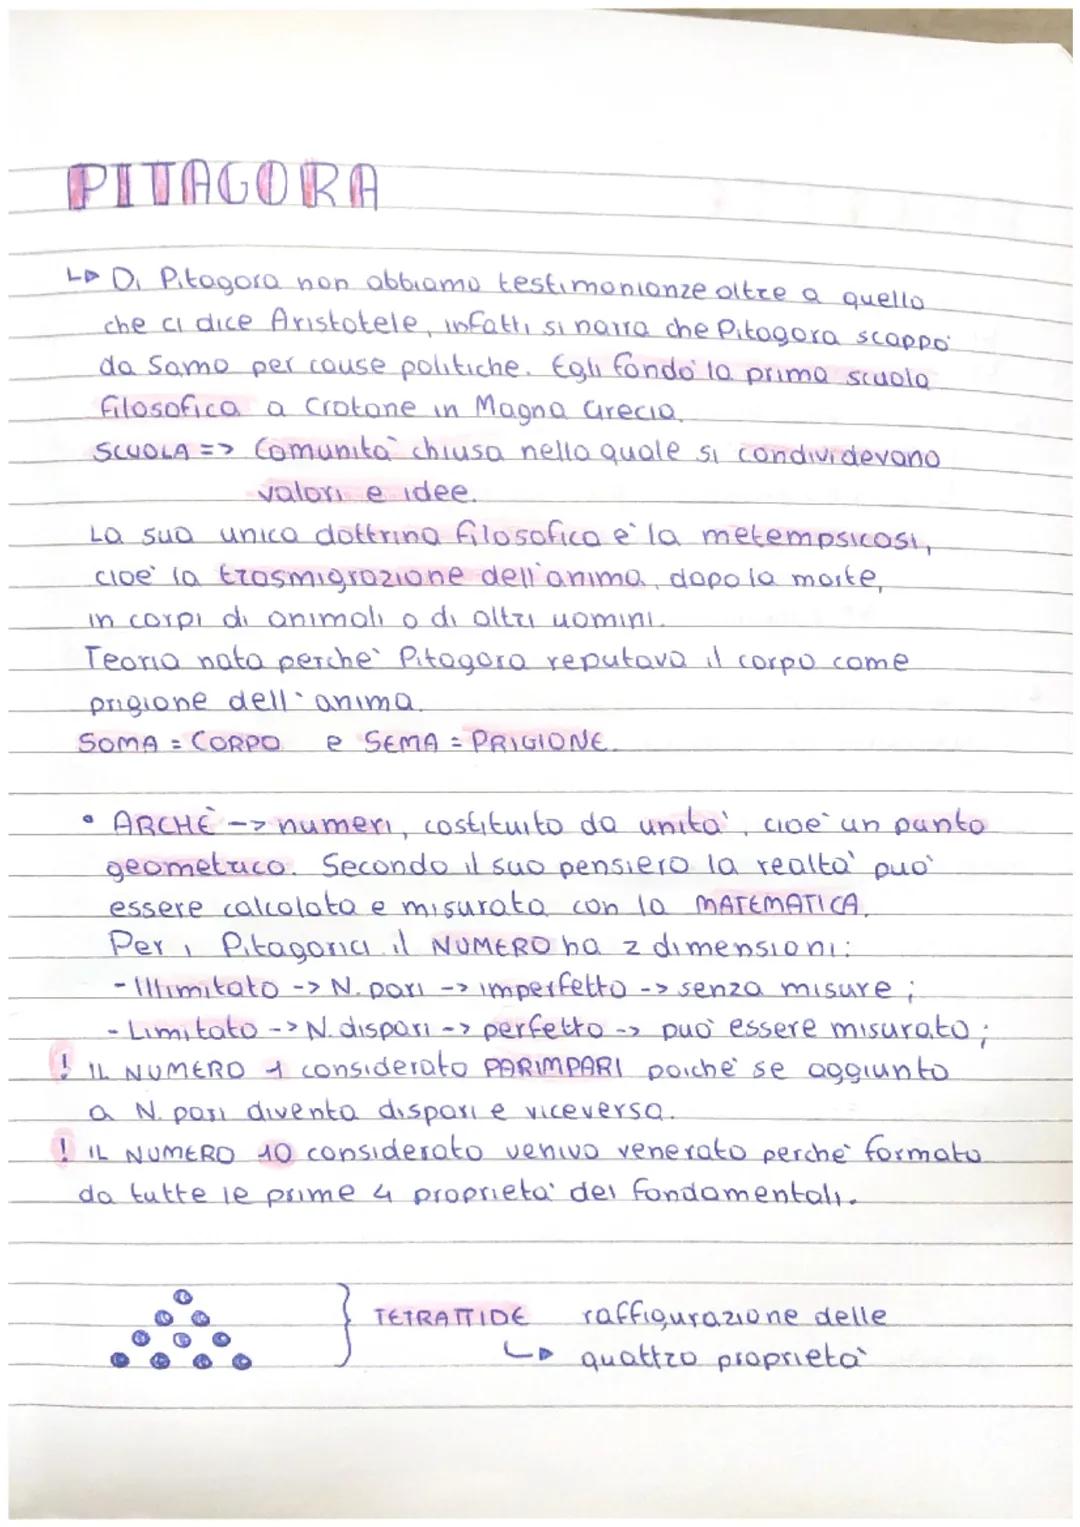 PITAGORA
↳ Di Pitagora non abbiamo testimonianze oltre a quello
che ci dice Aristotele, infatti si narra che Pitagora scappò
da Samo per cause politiche. Egli fondò la prima scuola
filosofica a Crotone in Magna Grecia.
SCUOLA => Comunità chiusa nella quale si condividevano
valori e idee.
La sua unica dottrina filosofica è la metempsicosi,
cioè la trasmigrazione dell'anima, dopo la morte,
in corpi di animali o di altri uomini.
Teoria nata perchè Pitagora reputava il corpo come
prigione dell'anima.
SOMA = CORPO e SEMA = PRIGIONE.
• ARCHÈ -> numeri, costituito da unità, cioè un punto
geometrico. Secondo il suo pensiero la realtà può
essere calcolata e misurata con la MATEMATICA.
Per i Pitagorici il NUMERO ha 2 dimensioni:
- Illimitato -> N. pari -> imperfetto -> senza misure;
- Limitato -> N. dispari -> perfetto -> può essere misurato;
! IL NUMERO 1 considerato PARIMPARI poichè se aggiunto
a N. pari diventa dispari e viceversa.
! IL NUMERO 10 considerato veniva venerato perchè formato
da tutte le prime 4 proprietà dei fondamentali.
TETRATTIDE raffigurazione delle
↳ quattro proprietà